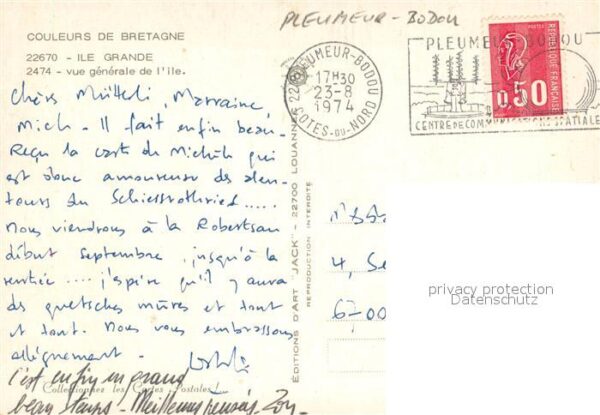 PLEUMEUR-BODOU
COULEURS DE BRETAGNE
22670 - ILE GRANDE
2474 - vue générale de l'île.
22 PLEUMEUR-BODOU
17H30
23-8
1974
COTES-DU-NORD
PLEUMEUR-BODOU
CENTRE DE COMMUNICATIONS SPATIALES
POSTES
REPUBLIQUE FRANÇAISE
0,50
Chers Mütterli, Marraine,
Mich - Il fait enfin beau.
Reçu la carte de Michèle qui
est donc amoureuse des alen-
tours du Schiessrothried.....
Nous viendrons à la Robertsau
début septembre, jusqu'à la
rentrée.... j'espère qu'il y aura
des quetsches mûres et tout
et tout. Nous vous embrassons
allégrement.
c'est enfin un grand
beau temps - Meilleures pensées
Collectionnez les Cartes Postales!
EDITIONS D'ART "JACK" - 22700 LOUANNEC
REPRODUCTION INTERDITE
4, Se
67-00
privacy protection
Datenschutz